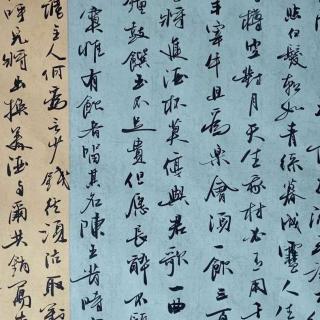 悲白髮朝如青絲暮成雪人生
樽空對月天生我材必有用千
羊宰牛且為樂會須一飲三百
將進酒杯莫停與君歌一曲
鼓饌玉不足貴但願長醉不願
寞惟有飲者留其名陳王昔時
謔主人何為言少錢徑須沽取對
呼兒將出換美酒與爾共銷萬古